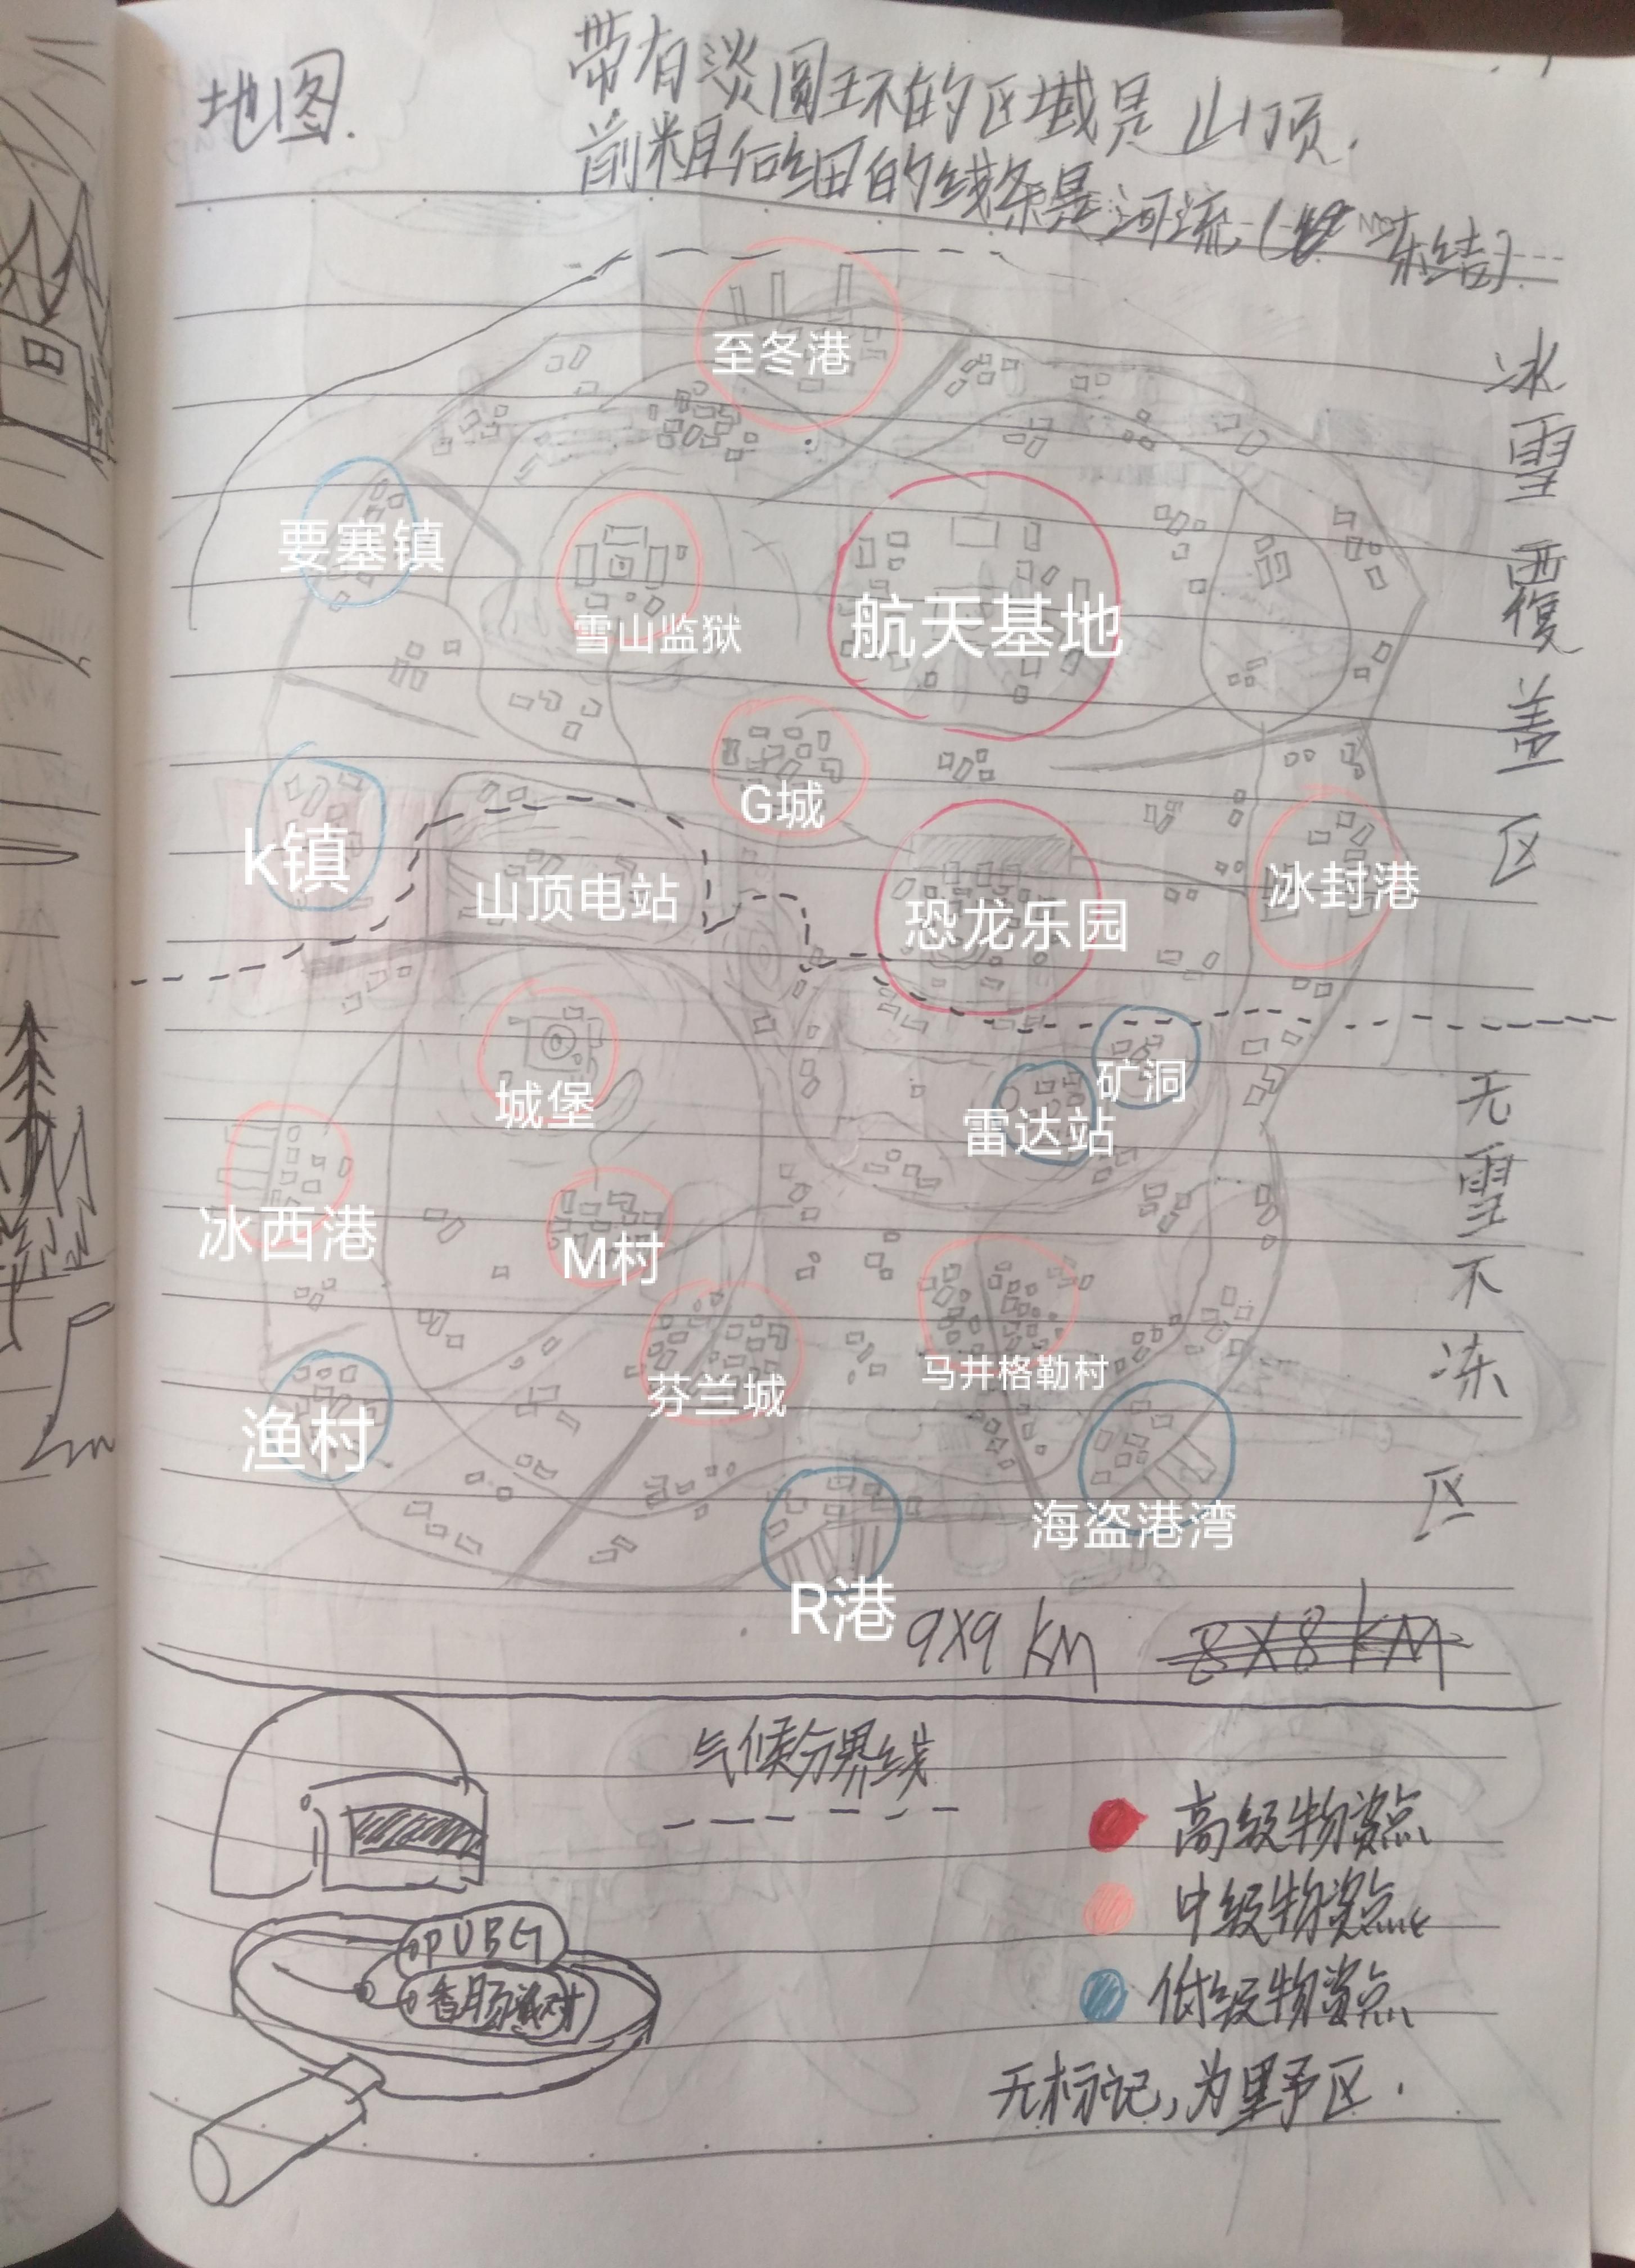 地图.
带有淡圆环的区域是山顶.
前粗后细的线条是河流(冻结).
至冬港
要塞镇
雪山监狱
航天基地
G城
k镇
山顶电站
恐龙乐园
冰封港
城堡
矿洞
雷达站
冰西港
M村
芬兰城
马井格勒村
渔村
海盗港湾
R港
冰雪覆盖区
无雪不冻区
9X9 km
8X8 KM
气候分界线
高级物资点
中级物资点
低级物资点
无标记,为野区.
PUBG
香肠派对